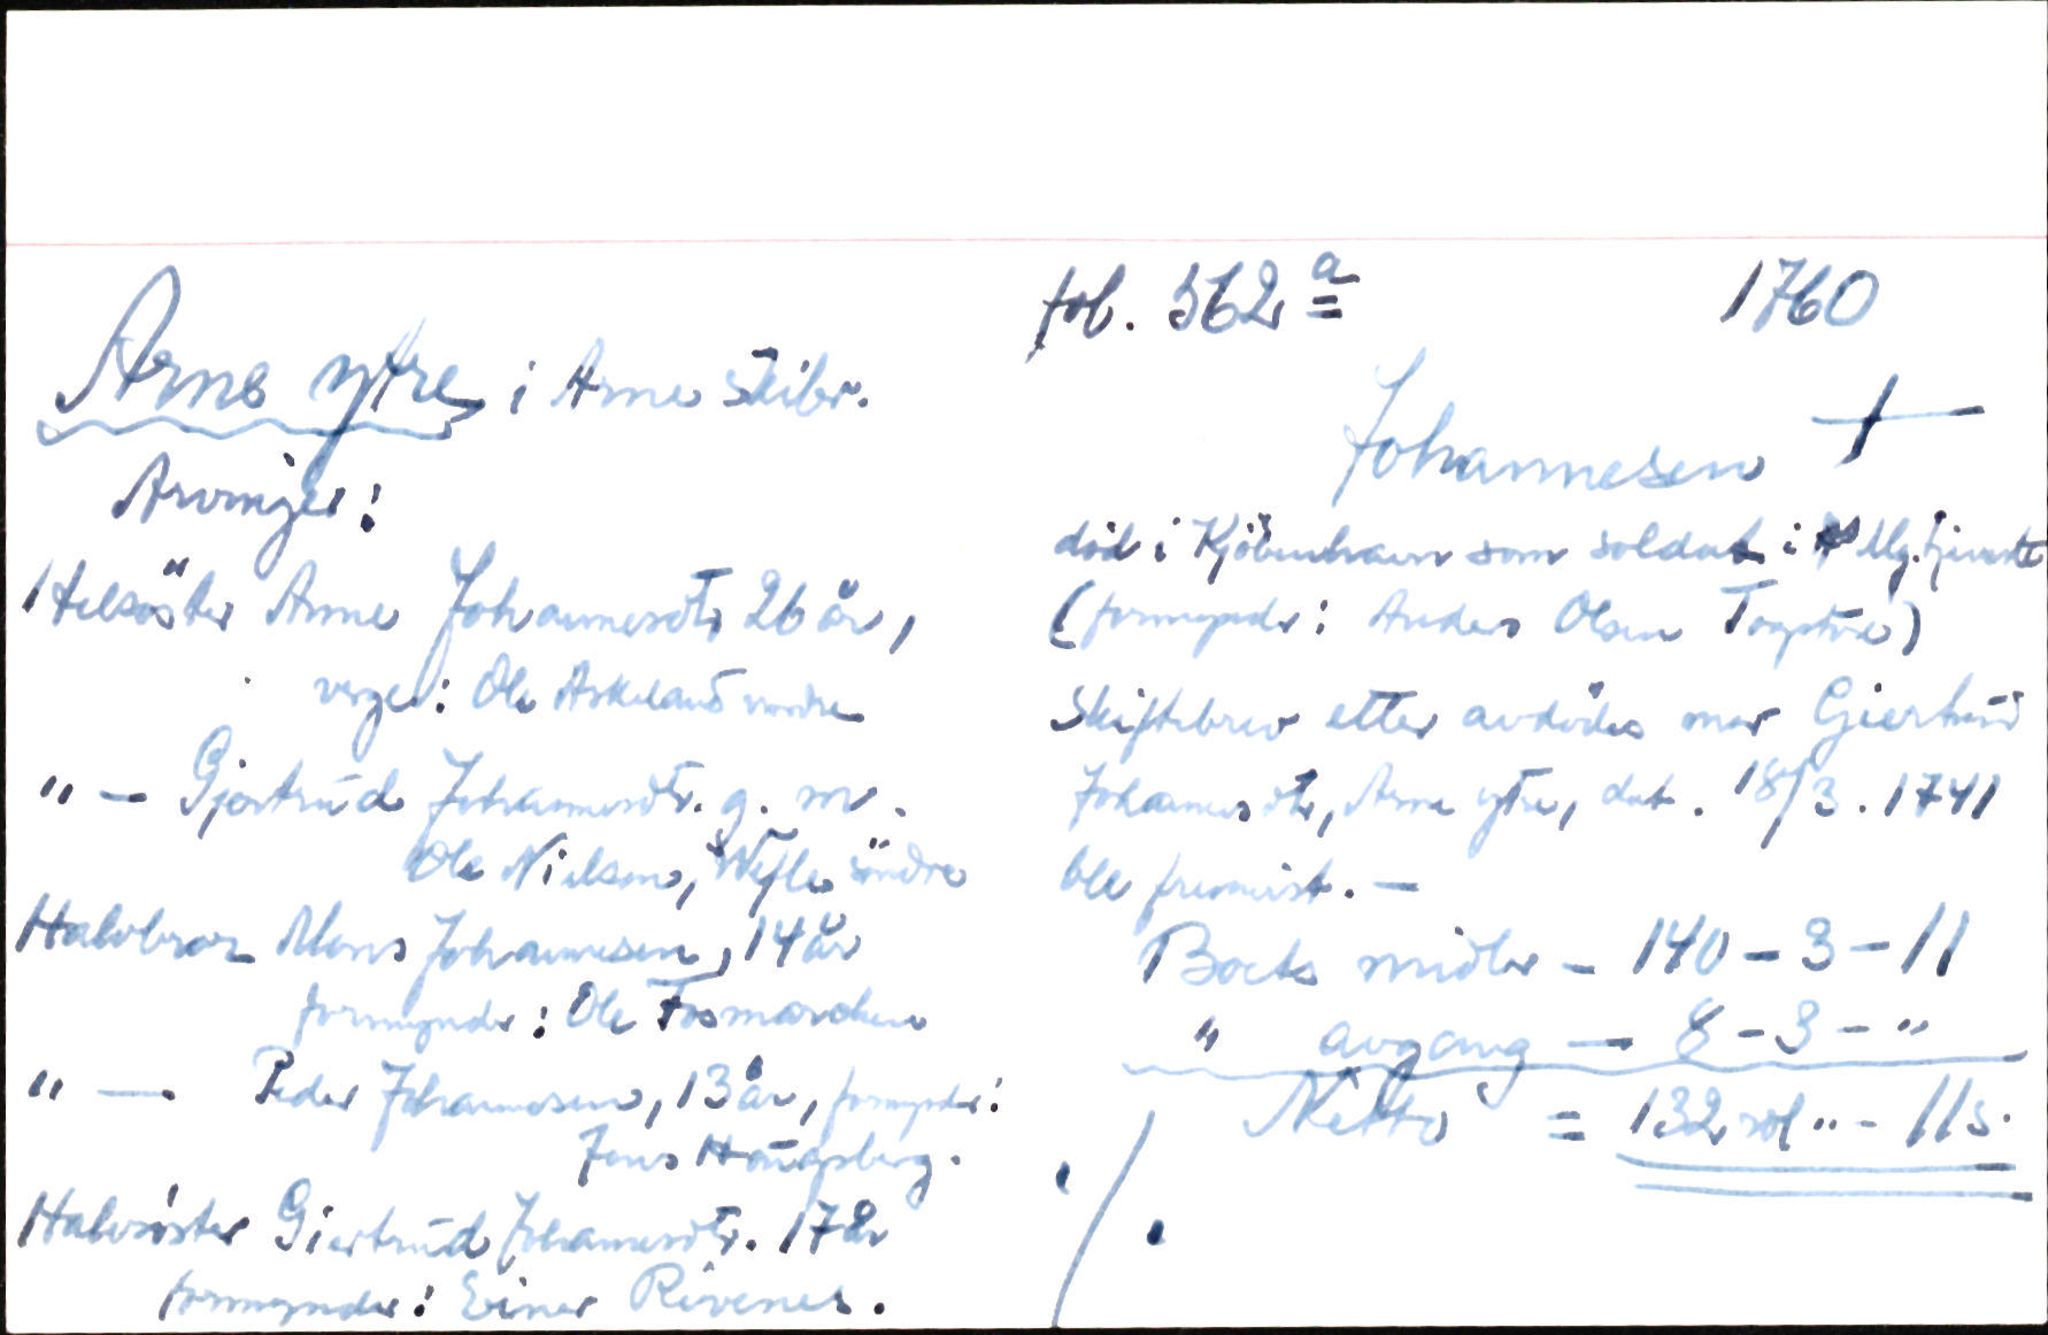 fol. 562 a 1760
Arne ytre i Arne skibr.
Johannesen +
Arvinger:
Helsöster Anne Johannesdtr 26 år,
verge: Ole Askeland nordre
" — Gjertrud Johannesdtr. g. m.
Ole Nielsen, söndre
Halvbror Mons Johannesen, 14 år
formynder: Ole Fosmarchen
" — Peder Johannesen, 13 år, formynder:
Jens Haugsberg.
Halvsöster Giertrud Johannesdtr. 17 år
formynder: Einar Rivenes.
död i Kjöbenhavn som soldat i
(formynder: Anders Olsen)
Skiftebrev etter avdödes mor Giertrud
Johannesdtr, Arne ytre, dat. 18/3. 1741
ble fremvist. —
Boets midler — 140 - 3 - 11
" avgang — 8 - 3 - "
Netto = 132 rdl " - 11 s.
./.